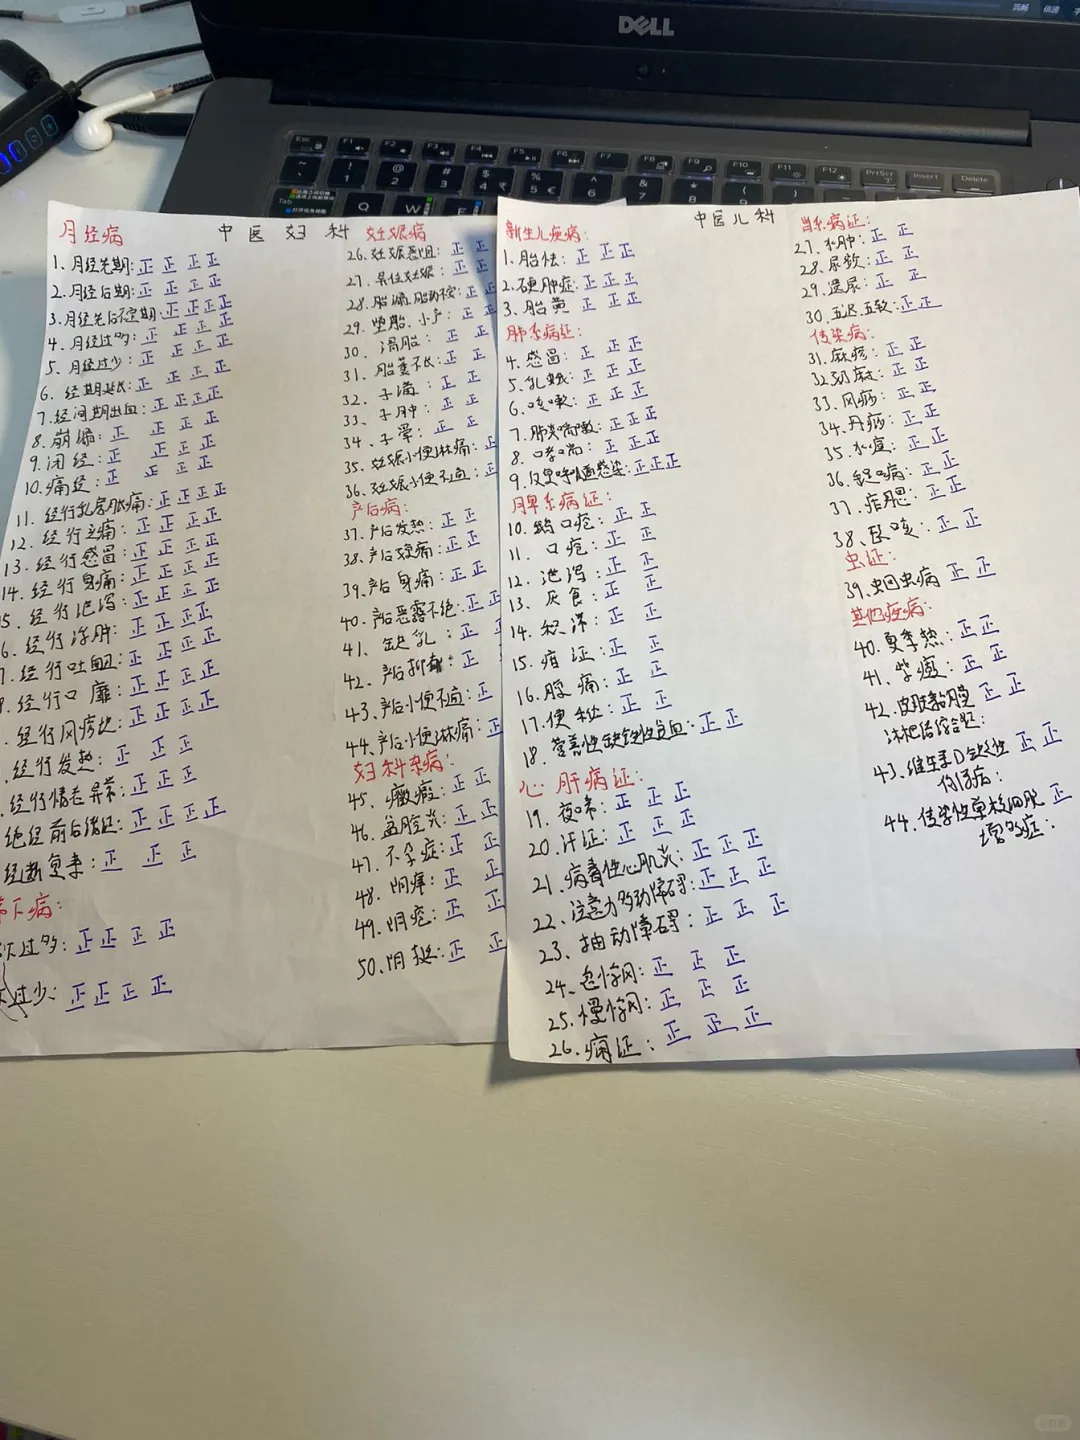 DELL
中医妇科
月经病
1、月经先期:正 正 正 正
2.月经后期:正 正 正 正
3.月经先后不定期:正 正 正 正
4、月经过多:正 正 正 正
5、月经过少:正 正 正 正
6、经期延长:正 正 正 正
7.经间期出血:正 正 正 正
8.崩漏:正 正 正 正
9.闭经:正 正 正 正
10.痛经:正 正 正 正
11、经行乳房胀痛:正 正 正 正
12、经行头痛:正 正 正 正
13、经行感冒:正 正 正 正
14、经行身痛:正 正 正 正
5、经行泄泻:正 正 正 正
6、经行浮肿:正 正 正 正
经行吐衄:正 正 正 正
经行口糜:正 正 正 正
经行风疹块:正 正 正 正
经行发热:正 正 正
经行情志异常:正 正 正
绝经前后诸证:正 正 正 正
经断复来:正 正 正
带下病:
下过多:正 正 正 正
过少:正 正 正 正
妊娠病
26.妊娠恶阻:正 正
27、异位妊娠:正 正
28、胎漏、胎动不安:正 正
29、堕胎、小产:正 正
30、滑胎:正 正
31、胎萎不长:正 正
32、子满:正 正
33、子肿:正 正
34、子晕:正 正
35、妊娠小便淋痛:正
36、妊娠小便不通:正
产后病:
37、产后发热:正 正
38、产后腹痛:正 正
39、产后身痛:正 正
40、产后恶露不绝:正 正
41、缺乳:正
42、产后抑郁:正
43、产后小便不通:正
44、产后小便淋痛:正
妇科杂病:
45、癥瘕:正 正
46、盆腔炎:正 正
47、不孕症:正 正
48、阴痒:正 正
49、阴疮:正 正
50、阴挺:正 正
中医儿科
新生儿疾病:
1、胎怯:正 正 正
2、硬肿症:正 正 正
3、胎黄:正 正 正
肺系病证:
4、感冒:正 正 正
5、乳蛾:正 正 正
6、咳嗽:正 正 正
7、肺炎喘嗽:正 正 正
8、哮喘:正 正 正
9、反复呼吸道感染:正 正 正
脾系病证:
10、鹅口疮:正 正
11、口疮:正 正
12、泄泻:正 正
13、厌食:正 正
14、积滞:正 正
15、疳证:正 正
16、腹痛:正 正
17、便秘:正 正
18、营养性缺铁性贫血:正 正
心肝病证:
19、夜啼:正 正 正
20、汗证:正 正 正
21、病毒性心肌炎:正 正 正
22、注意力多动障碍:正 正 正
23、抽动障碍:正 正 正
24、急惊风:正 正 正
25、慢惊风:正 正 正
26、痫证:正 正 正
肾系病证:
27、水肿:正 正
28、尿频:正 正
29、遗尿:正 正
30、五迟、五软:正 正
传染病:
31、麻疹:正 正
32、奶麻:正 正
33、风痧:正 正
34、丹痧:正 正
35、水痘:正 正
36、手足口病:正 正
37、痄腮:正 正
38、顿咳:正 正
虫证:
39、蛔虫病 正 正
其他疾病:
40、夏季热:正 正
41、紫癜:正 正
42、皮肤黏膜 正 正
淋巴结综合征:
43、维生素D缺乏性 正 正
佝偻病:
44、传染性单核细胞 正
增多症: